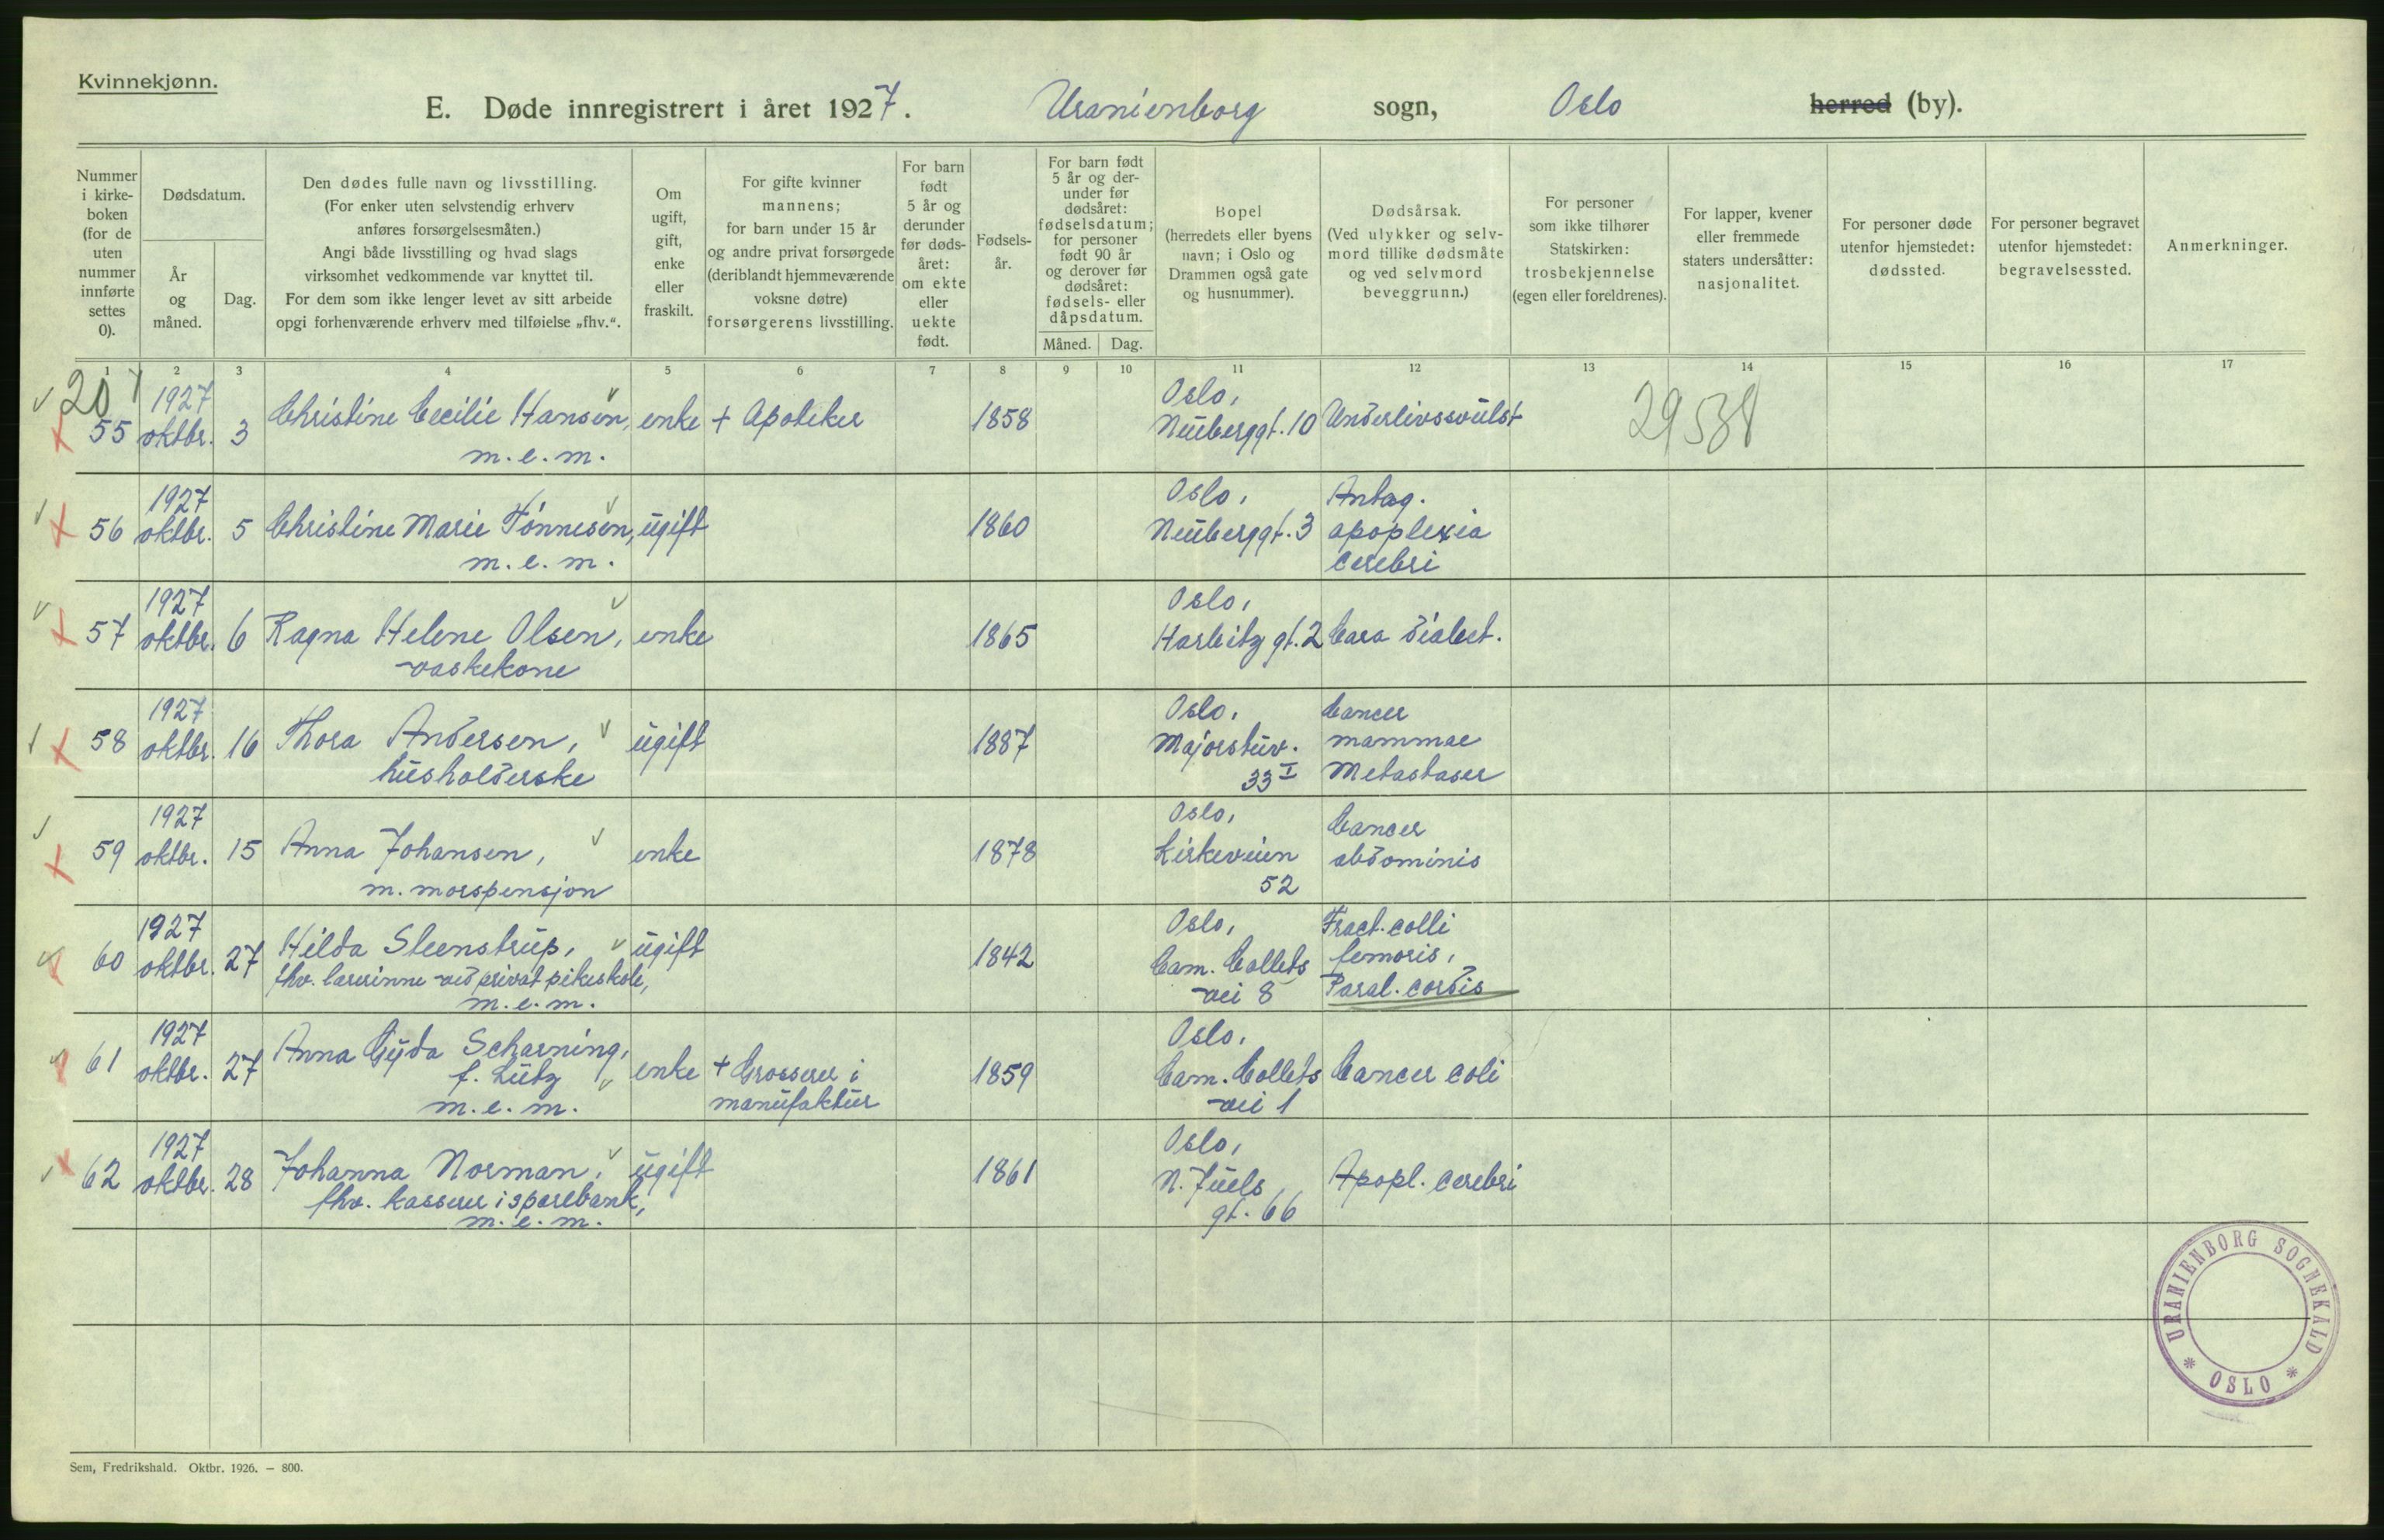 Kvinnekjønn.
E. Døde innregistrert i året 1927. Uranienborg sogn, Oslo herred (by).
Nummer i kirke-boken (for de uten nummer innførte settes 0).
Dødsdatum.
År og måned.
Dag.
Den dødes fulle navn og livsstilling.
(For enker uten selvstendig erhverv
anføres forsørgelsesmåten.)
Angi både livsstilling og hvad slags
virksomhet vedkommende var knyttet til.
For dem som ikke lenger levet av sitt arbeide
opgi forhenværende erhverv med tilføielse „fhv.“.
Om
ugift,
gift,
enke
eller
fraskilt.
For gifte kvinner
mannens;
for barn under 15 år
og andre privat forsørgede
(deriblandt hjemmeværende
voksne døtre)
forsørgerens livsstilling.
For barn
født
5 år og
derunder
før døds-
året:
om ekte
eller
uekte
født.
Fødsels-
år.
For barn født
5 år og der-
under før
dødsåret:
fødselsdatum;
for personer
født 90 år
og derover før
dødsåret:
fødsels- eller
dåpsdatum.
Måned. Dag.
Bopel
(herredets eller byens
navn; i Oslo og
Drammen også gate
og husnummer).
Dødsårsak.
(Ved ulykker og selv-
mord tillike dødsmåte
og ved selvmord
beveggrunn.)
For personer
som ikke tilhører
Statskirken:
trosbekjennelse
(egen eller foreldrenes).
For lapper, kvener
eller fremmede
staters undersåtter:
nasjonalitet.
For personer døde
utenfor hjemstedet:
dødssted.
For personer begravet
utenfor hjemstedet:
begravelsessted.
Anmerkninger.
1 2 3 4 5 6 7 8 9 10 11 12 13 14 15 16 17
20
55 1927 oktbr. 3 Christine Cecilie Hansen, m.e.m. enke + Apoteker 1858 Oslo, Neuberggt. 10 Underlivssvulst
56 1927 oktbr. 5 Christine Marie Tönnesen, m.e.m. ugift 1860 Oslo, Neuberggt. 3 Antag. apoplexia cerebri
57 1927 oktbr. 6 Ragna Helene Olsen, vaskekone enke 1865 Oslo, Harbitz gt. 2 Coma diabet.
58 1927 oktbr. 16 Thora Andersen, husholderske ugift 1887 Oslo, Majorstuv. 33 I Cancer mammae Metastaser
59 1927 oktbr. 15 Anna Johansen, m. morspensjon enke 1878 Oslo, Kirkeveien 52 Cancer abdominis
60 1927 oktbr. 27 Hilda Steenstrup, fhv. lærerinne ved privat pikeskole, m.e.m. ugift 1842 Oslo, Cam. Colletts vei 8 Fract. colli femoris, Paral. cordis
61 1927 oktbr. 27 Anna Gyda Scharning, f. Lütz m.e.m. enke + Grosserer i manufaktur 1859 Oslo, Cam. Colletts vei 1 Cancer coli
62 1927 oktbr. 28 Johanna Norman, fhv. kasserer i sparebank, m.e.m. ugift 1861 Oslo, N. Juels gt. 66 Apopl. cerebri
URANIENBORG SOGNEKALD * OSLO *
Sem, Fredrikshald. Oktbr. 1926. – 800.